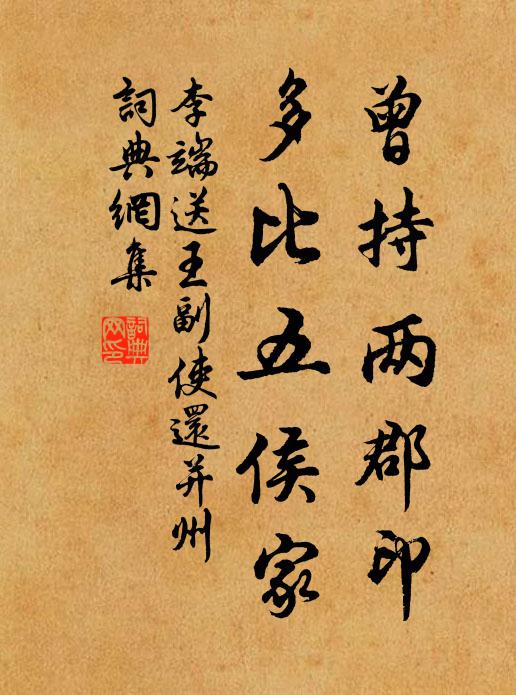 曾持两郡印
多比五侯家
李端送王副使還并州
詞典網集
詞典
网印